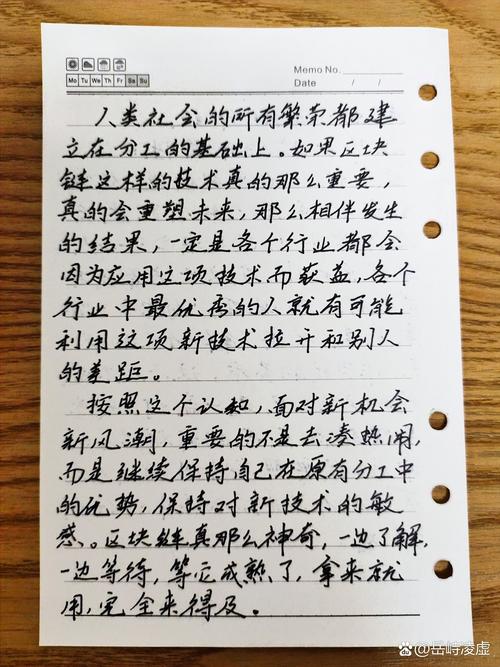 Memo No.
Mo Tu We Th Fr Sa Su
Date / /
人类社会的所有繁荣都建
立在分工的基础上。如果区块
链这样的技术真的那么重要，
真的会重塑未来，那么相伴发生
的结果，一定是各个行业都会
因为应用这项技术而获益，各个
行业中最优秀的人就有可能
利用这项新技术拉开和别人
的差距。
按照这个认知，面对新机会
新风潮，重要的不是去凑热闹，
而是继续保持自己在原有分工中
的优势，保持对新技术的敏
感。区块链真那么神奇，一边了解，
一边等待，等它成熟了，拿来就
用，完全来得及。
@岳峙凌虚